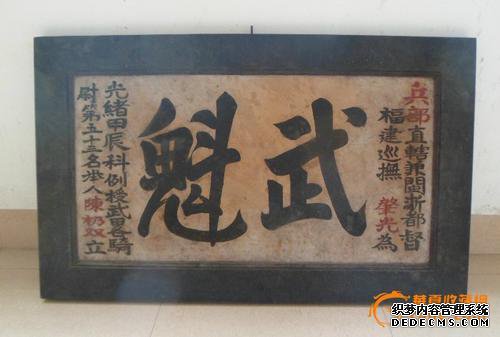 兵部直轄兼閩浙都督
福建巡撫 肇光為
武魁
光緒甲辰科例授武畧騎
尉第五十三名举人陳双立
華夏收藏网
织梦内容管理系统
DEDECMS.COM